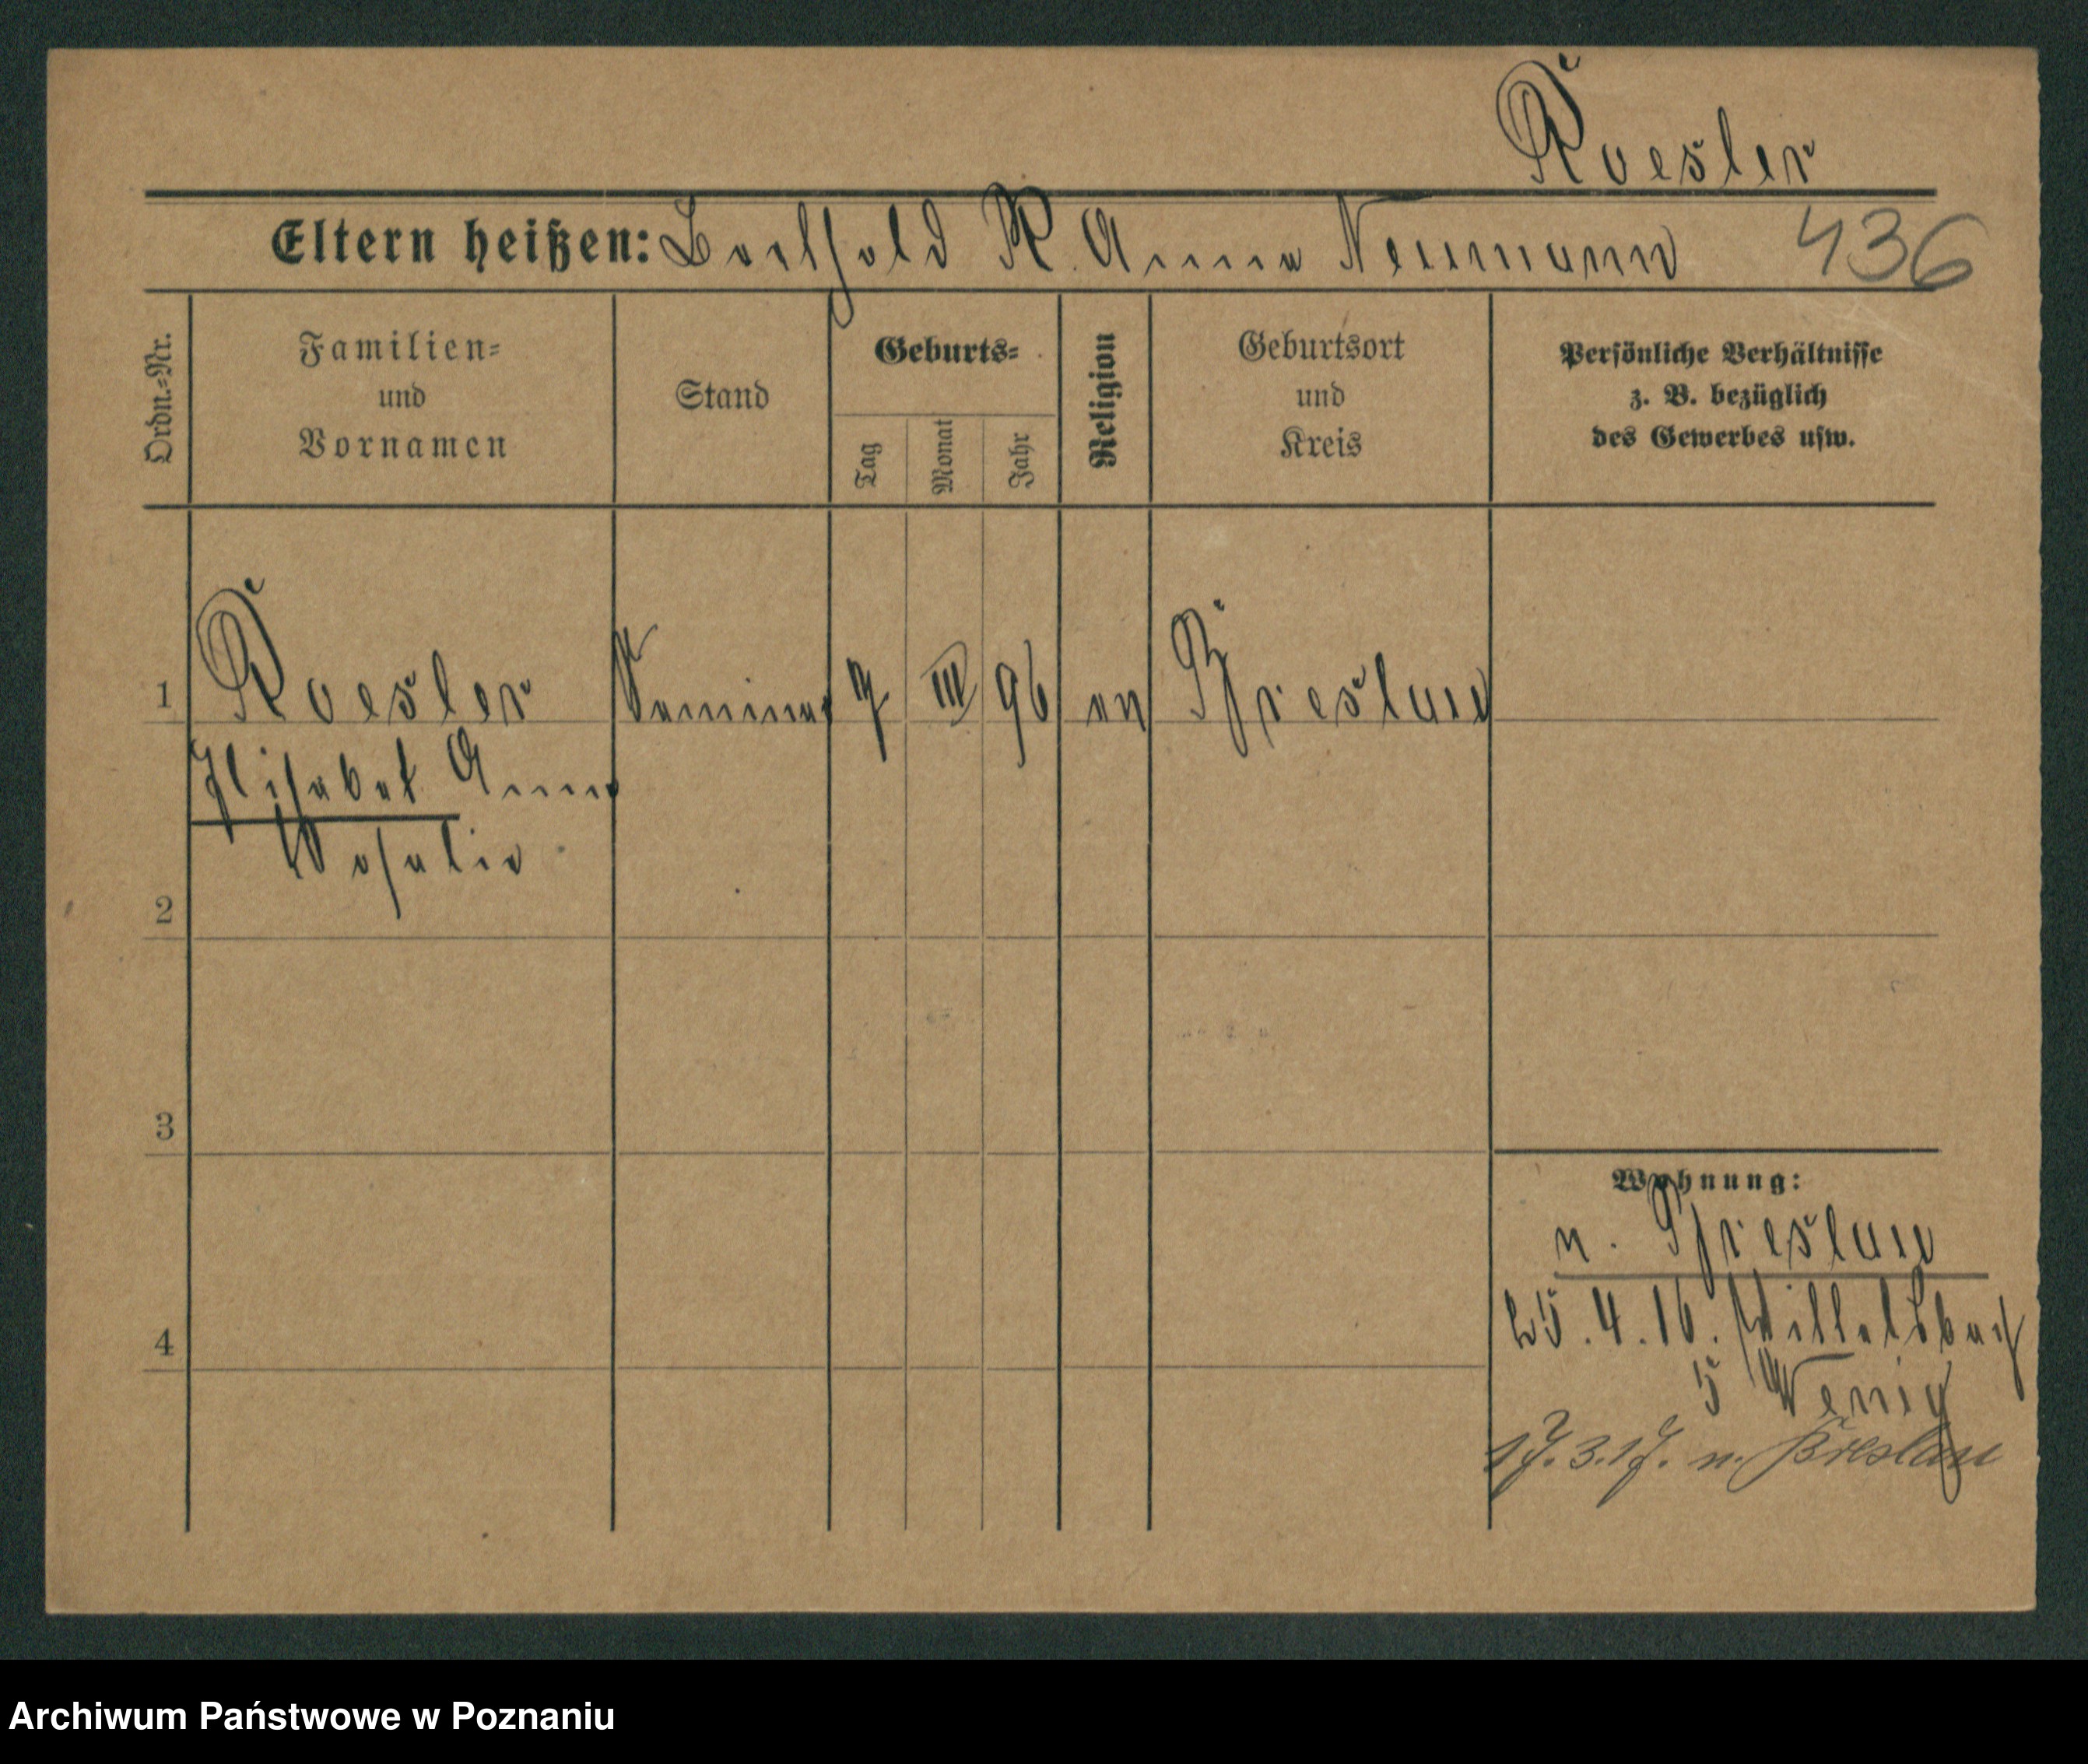 Roesler
Eltern heißen: Berthold R. Anna Neumann 436
Ordn.-Nr.
Familien-
und
Vornamen
Stand
Geburts-
Tag
Monat
Jahr
Religion
Geburtsort
und
Kreis
Persönliche Verhältnisse
z. B. bezüglich
des Gewerbes usw.
1 Roesler 7 III 96 ev Breslau
Elisabet Anna
Rosalie
2
3
4
Wohnung:
n. Breslau
25.4.16. Wittelsbach
5 Wenig
17.3.17. n. Breslau
Archiwum Państwowe w Poznaniu